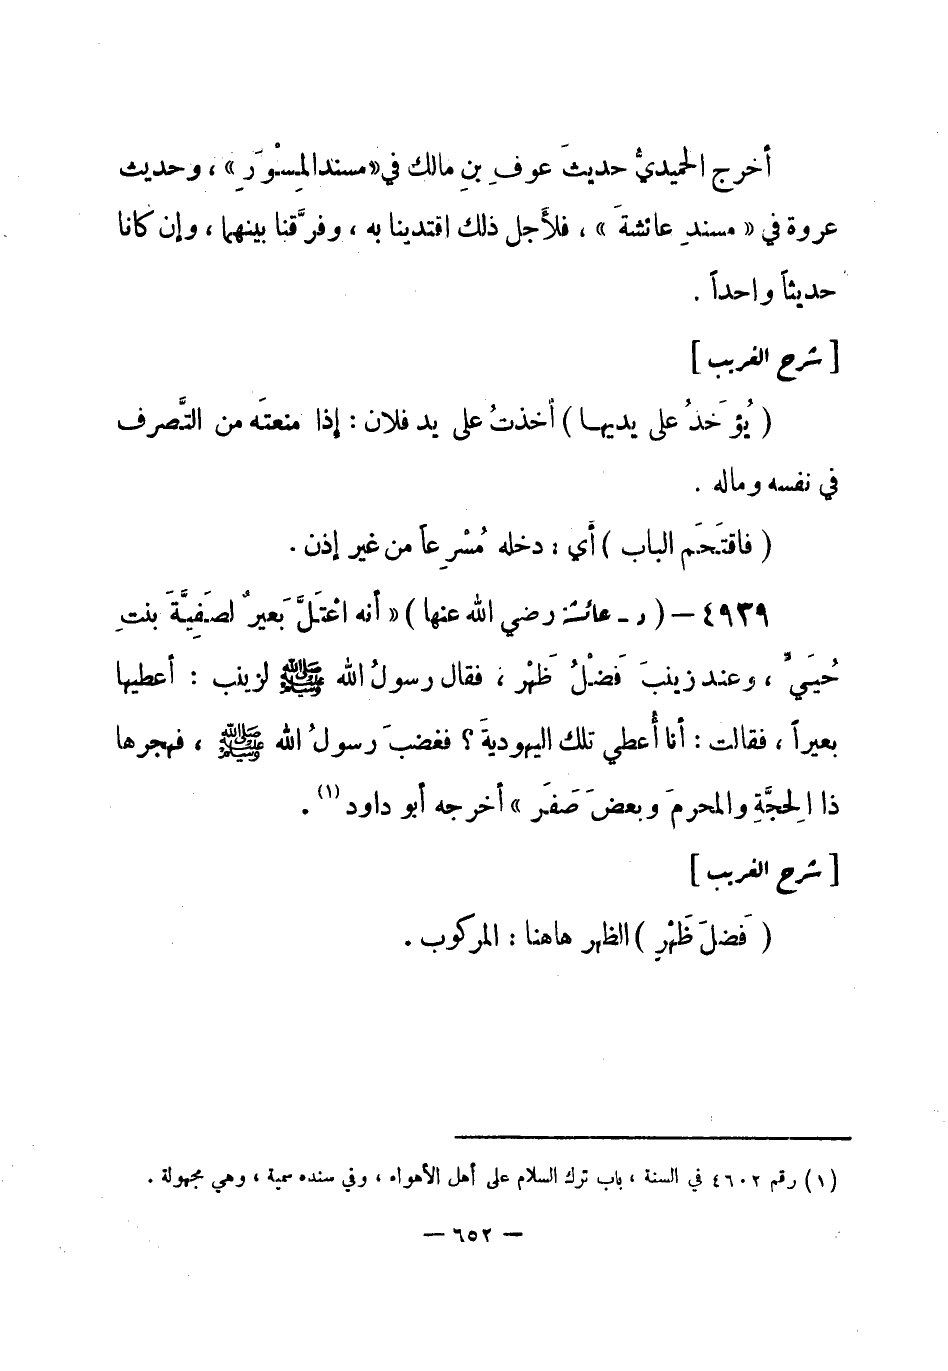 أخرج الحميديُّ حديثَ عوفِ بنِ مالك في «مسند المِسْوَرِ» ، وحديث
عروة في « مسندِ عائشةَ » ، فلأجل ذلك اقتدينا به ، وفرَّقنا بينهما ، وإن كانا
حديثاً واحداً .
[ شرح الغريب ]
( يُؤخَذُ على يديها ) أخذتُ على يد فلان : إذا منعتَه من التَّصرف
في نفسه وماله .
( فاقتَحَم الباب ) أَي : دخله مُسْرِعاً من غير إذن .
٤٩٣٩ – ( د - عائشة رضي الله عنها ) « أنه اعْتَلَّ بَعيرٌ لصَفِيَّةَ بنتِ
حُيَيٍّ ، وعند زينبَ فَضْلُ ظَهْرٍ ، فقال رسولُ الله ﷺ لزينب : أعطيها
بعيراً ، فقالت : أنا أُعطي تلك اليهوديةَ ؟ فغضبَ رسولُ الله ﷺ ، فهجرها
ذا الِحجَّةِ والمحرمَ وبعضَ صَفَر » أخرجه أبو داود (١) .
[ شرح الغريب ]
( فَضلَ ظَهْرٍ ) الظهر هاهنا : المركوب .
(١) رقم ٤٦٠٢ في السنة ، باب ترك السلام على أهل الأهواء ، وفي سنده سمية ، وهي مجهولة .
– ٦٥٢ –